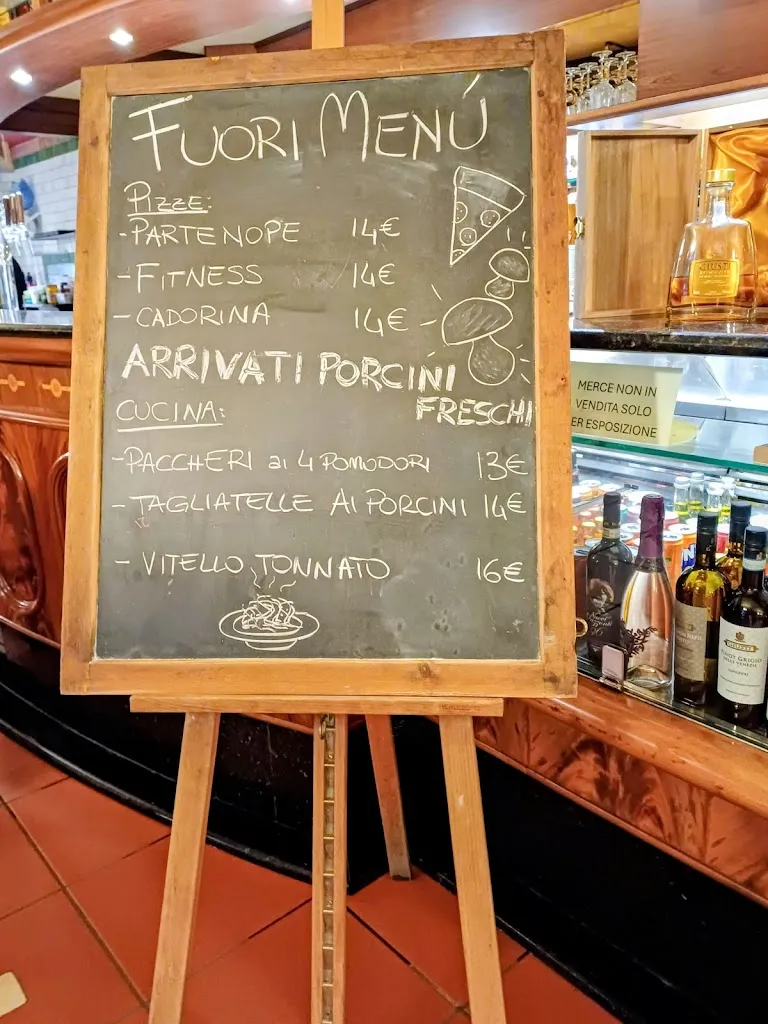 FUORI MENÚ
PIZZE:
- PARTENOPE 14€
- FITNESS 14€
- CADORINA 14€
ARRIVATI PORCINI
FRESCHI
CUCINA:
- PACCHERI ai 4 POMODORI 13€
- TAGLIATELLE AI PORCINI 14€
- VITELLO TONNATO 16€
GIUSTI
MERCE NON IN
VENDITA SOLO
ER ESPOSIZIONE
PINOT GRIGIO